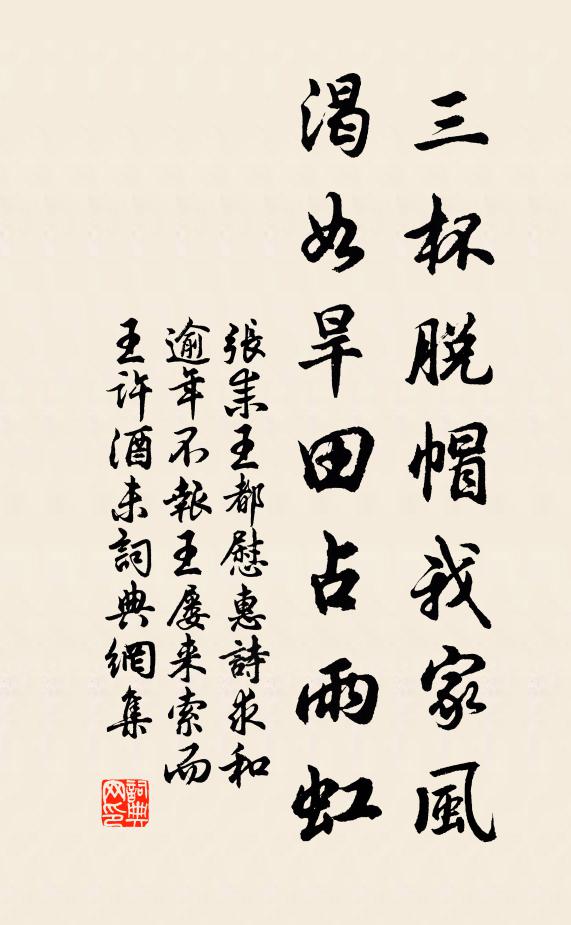 三杯脱帽我家風
渴如旱田占雨虹
張業王都慰惠詩求和
逾年不報王屡来索而
王許酒未詞典網集
詞典网印